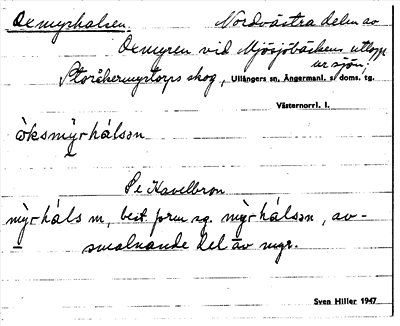 Oxmyrhalsen. Nordvästra delen av
Oxmyren vid Mjösjöbäckens utlopp
ur sjön;
Storåkermyrtorps skog, Ullångers sn, Ångermanl. s/ doms. tg.
Västernorrl. l.
ò̀ksmỳrhálsən
Se Kavelbron
mỳrháls m, best. form sg. mỳrhálsən, av-
smalnande del av myr.
Sven Hiller 1947